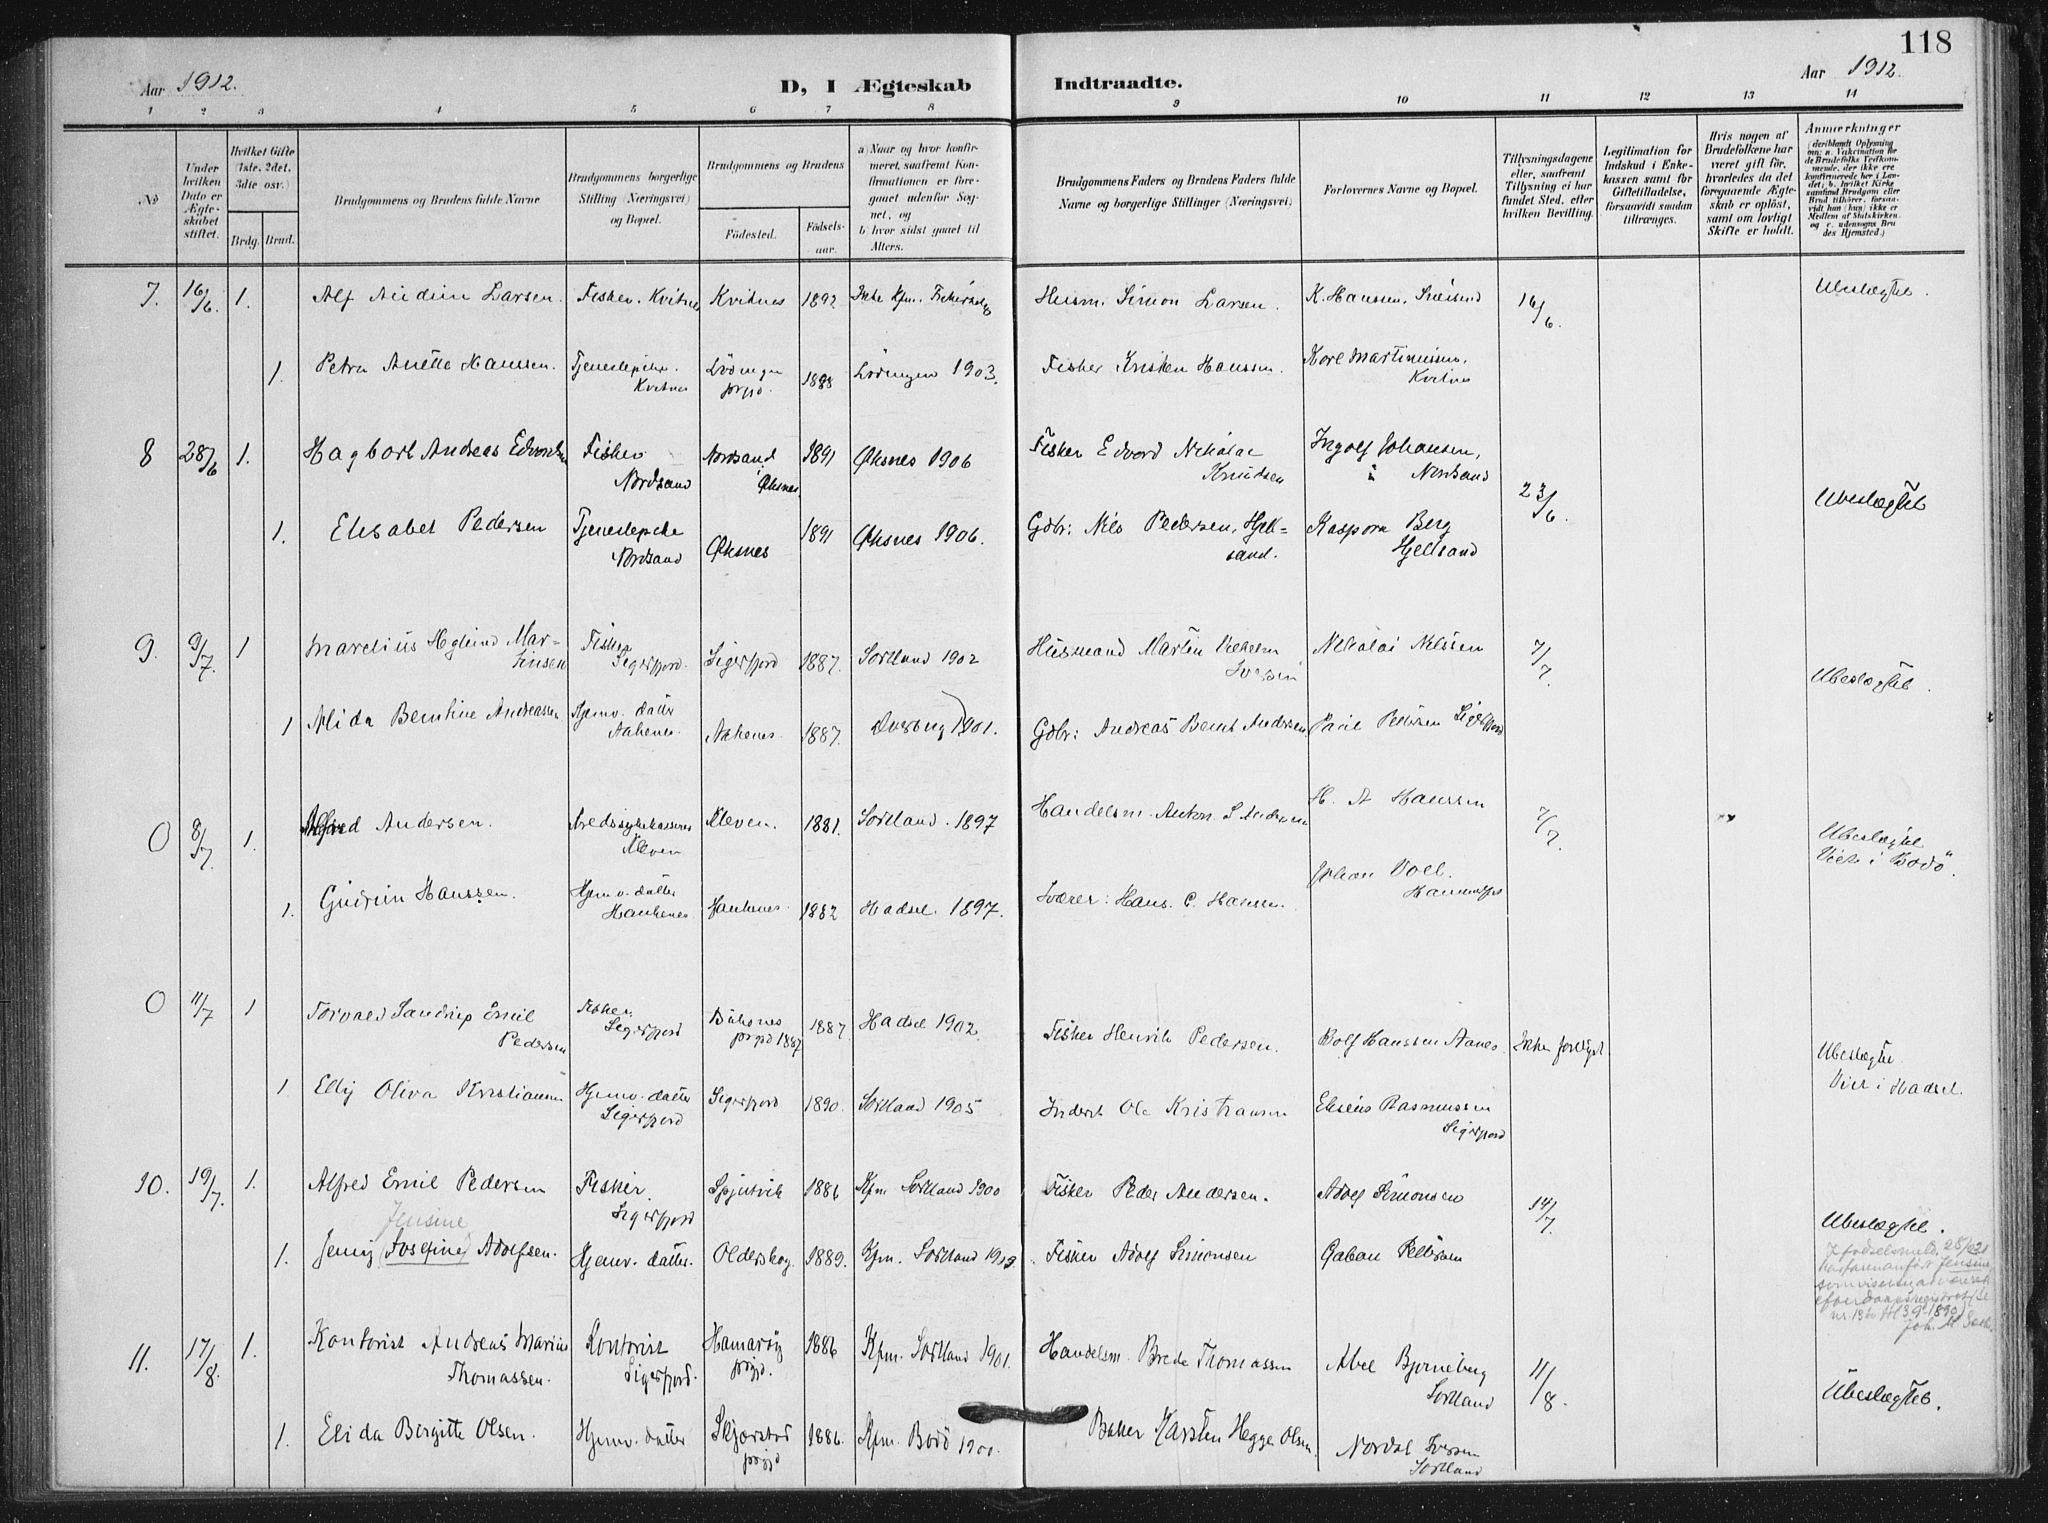 118
Aar 1912. D, I Ægteskab Indtraadte. Aar 1912.
1 2 3 4 5 6 7 8 9 10 11 12 13 14
№
Under hvilken Dato er Ægteskabet stiftet.
Hvilket Gifte (1ste, 2det, 3die osv.)
Brdg. Brud.
Brudgommens og Brudens fulde Navne
Brudgommens borgerlige Stilling (Næringsvei) og Bopæl.
Brudgommens og Brudens
Fødested. Fødselsaar.
a) Naar og hvor konfirmeret, saafremt Konfirmationen er foregaaet udenfor Sognet, og
b) hvor sidst gaaet til Alters.
Brudgommens Faders og Brudens Faders fulde Navne og borgerlige Stillinger (Næringsvei)
Forlovernes Navne og Bopæl.
Tillysningsdagene eller, saafremt Tillysning ei har fundet Sted, efter hvilken Bevilling.
Legitimation for Indskud i Enkekassen samt for Giftetilladelse, forsaavidt saadan tiltrænges.
Hvis nogen af Brudefolkene har været gift før, hvorledes da det foregaaende Ægteskab er opløst, samt om lovligt Skifte er holdt.
Anmærkninger
7. 16/6. 1. Alf Audun Larsen. Fisker. Kvitnes Kvitnes 1892 Ikke Kfm. Husm. Simon Larsen. K. Hanssen. 16/6. Ubeslægtet.
1. Petra Anette Hanssen. Kvitnes Lödingen prgjd. 1888 Lödingen 1903. Fisker Kristen Hanssen. Kore Martinussen. Kvitnes
8 28/6 1. Hagbart Andreas Edvardsen Fisker Nordsand Nordsand i Øksnes 1891 Øksnes 1906 Fisker Edvard Nikolai Knudsen Ingolf Johansen, Nordsand 23/6. Ubeslægtet
1. Elisabet Pedersen Tjenestepike Nordsand Øksnes 1891 Øksnes 1906. Gdbr: Nils Pedersen, Hjellsand. Kaspara Berg Hjellsand
9. 9/7. 1 Marelius Hoglund Martinsen Fisker Sigerfjord. Sigerfjord 1887. Sortland 1902 Husmand Martin Vilhelm Iversen Nikolai Nilssen 7/7. Ubeslægtet.
1 Alida Berntine Andreassen Hjemv. datter Aakenes. Aakenes. 1887. Dverberg 1901. Gdbr: Andreas Bernt Andersen Paul Pettersen Sigerfjord
0 8/7. 1. Alfred Andersen. Kleven Kleven. 1881. Sortland. 1897 Handelsm. Anton S Andersen H. A Hanssen 7/7. Ubeslægtet Viet i Bodö.
1. Gudrun Hanssen. Hjemv. datter Haukenes Haukenes. 1882 Hadsel. 1897. Hans. C. Hanssen. Johan Voll.
0 11/7 1 Torvald Emil Pedersen Fisker. Sigerfjord Buksnes prgjd 1887 1887. Hadsel 1902. Fisker Henrik Pedersen. Rolf Hanssen Aanes. Ikke forlyst. Ubeslægtet. Viet i Hadsel.
1 Elly Oliva Kristiansen Hjemv. datter Sigerfjord Sigerfjord 1890. Sortland 1905 Inderst Ole Kristiansen Eliseus Rasmussen Sigerfjord
10. 19/7. 1. Alfred Emil Pedersen Fisker. Sigerfjord Spjutvik 1886 Kfm Sortland 1900 Fisker Peder Andersen. Adolf Simonsen 14/7. Ubeslægtet.
Jensine
1. Jenny (Josefine) Adolfsen. Hjemv. datter. Olderskog. 1889. Kfm. Sortland 1903. Fisker Adolf Simonsen Gaban Pettersen
I fødselsmeld. Jensine
11. 17/8. 1. Kontorist Andreas Marius Thomassen. Kontorist Sigerfjord. Hamarøy prgjd. 1886 Kfm. Sortland 1901. Handelsm. Brede Thomassen Abel Bjørneberg Sortland 11/8. Ubeslægtet.
1. Elida Birgitte Olsen. Hjemv. datter Skjerstad prgjd 1886. Kfm. Bodö 1900. Baker Karsten Hegge Olsen. Nordal Iversen Sortland